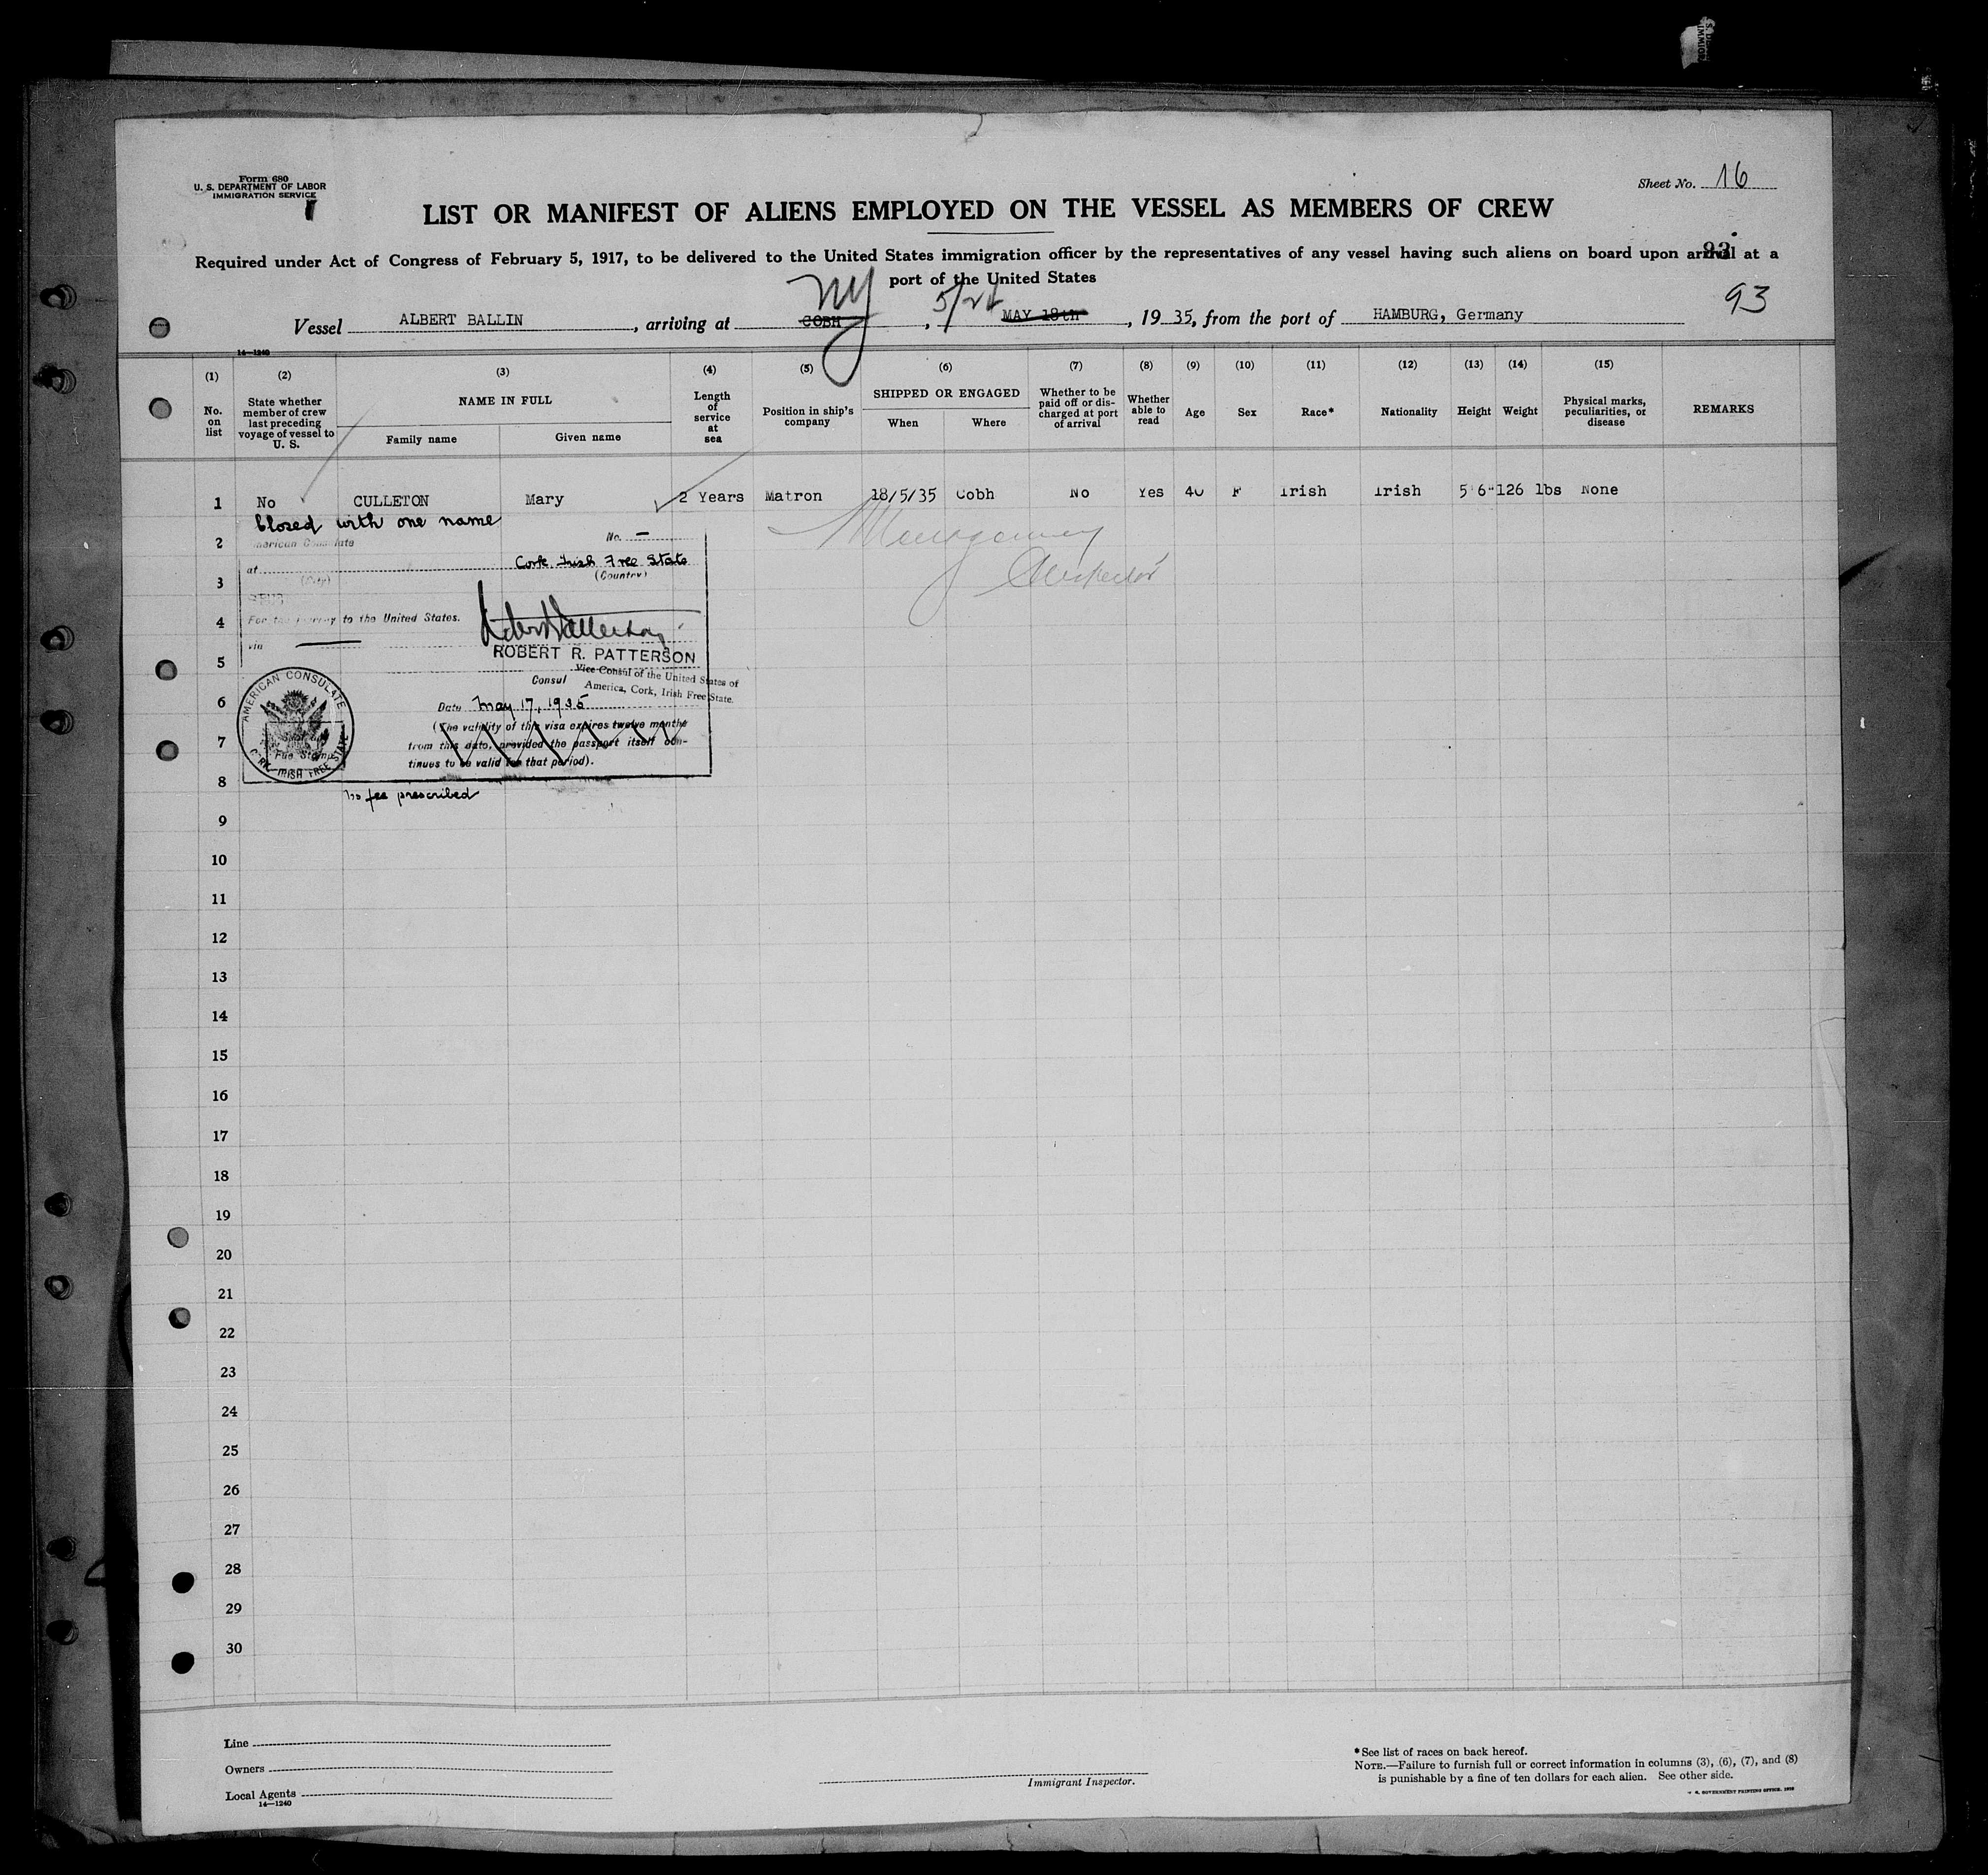 Form 680
U. S. DEPARTMENT OF LABOR
IMMIGRATION SERVICE
Sheet No. 16
LIST OR MANIFEST OF ALIENS EMPLOYED ON THE VESSEL AS MEMBERS OF CREW
93
Required under Act of Congress of February 5, 1917, to be delivered to the United States immigration officer by the representatives of any vessel having such aliens on board upon arrival at a
port of the United States
93
NY
Vessel ALBERT BALLIN, arriving at COBH, MAY 18th, 1935, from the port of HAMBURG, Germany
14—1240
(1) (2) (3) (4) (5) (6) (7) (8) (9) (10) (11) (12) (13) (14) (15)
No. on list
State whether member of crew last preceding voyage of vessel to U. S.
NAME IN FULL
Family name
Given name
Length of service at sea
Position in ship's company
SHIPPED OR ENGAGED
When
Where
Whether to be paid off or discharged at port of arrival
Whether able to read
Age
Sex
Race*
Nationality
Height
Weight
Physical marks, peculiarities, or disease
REMARKS
1 No CULLETON Mary 2 Years Matron 18/5/35 Cobh No Yes 40 F Irish Irish 5'6" 126 lbs None
Closed with one name
2
American Consulate
No. —
at
Cork Irish Free State
(City)
(Country)
3
4
For the journey to the United States.
via
5
ROBERT R. PATTERSON
Vice Consul of the United States of
America, Cork, Irish Free State.
Consul
6
Date May 17, 1935
(The validity of this visa expires twelve months
7
from this date, provided the passport itself con-
tinues to be valid for that period).
AMERICAN CONSULATE
CORK IRISH FREE STATE
Fee Stamp
8
No fee prescribed
Inspector
9
10
11
12
13
14
15
16
17
18
19
20
21
22
23
24
25
26
27
28
29
30
Line
Owners
Local Agents
14—1240
Immigrant Inspector.
*See list of races on back hereof.
NOTE.—Failure to furnish full or correct information in columns (3), (6), (7), and (8)
is punishable by a fine of ten dollars for each alien. See other side.
U. S. GOVERNMENT PRINTING OFFICE